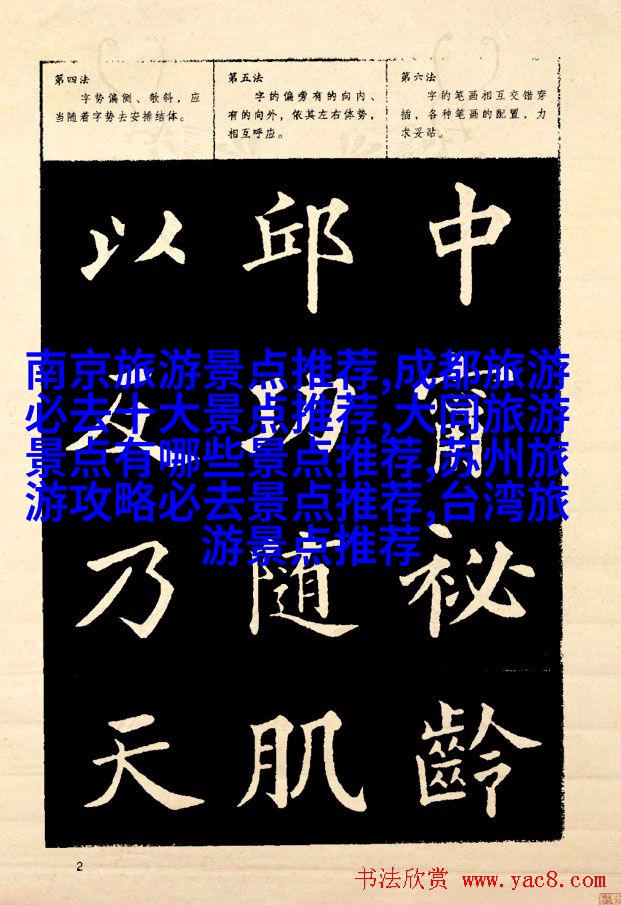 第四法
字势偏侧、欹斜，应
当随着字势去安排结体。
第五法
字的偏旁有的向内、
有的向外，依其左右体势，
相互呼应。
第六法
字的笔画相互交错穿
插，各种笔画的配置，力
求妥贴。
以 邱 中
南京旅游景点推荐,成都旅游
必去十大景点推荐,大同旅游
景点有哪些景点推荐,苏州旅
游攻略必去景点推荐,台湾旅
游景点推荐
乃 随 祕
天 肌 齡
2
书法欣赏 www.yac8.com